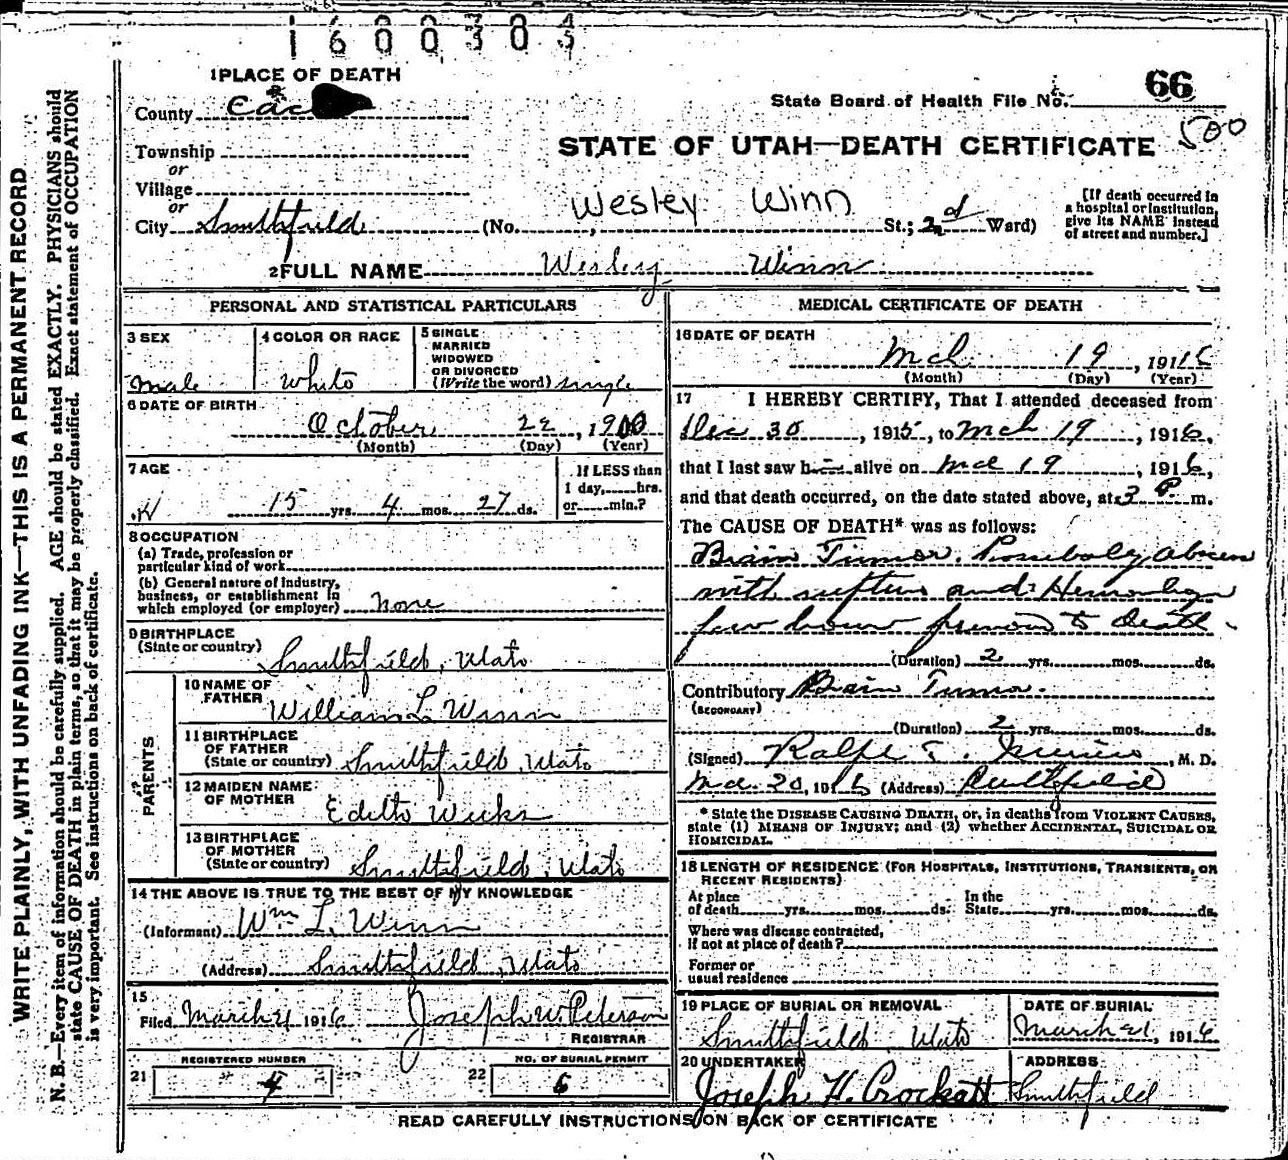 1600303
1 PLACE OF DEATH
66
County
State Board of Health File No.
500
Township
STATE OF UTAH—DEATH CERTIFICATE
or
Village
or
City Smithfield (No. Wesley Winn St.; 2nd Ward)
[If death occurred in
a hospital or institution,
give its NAME instead
of street and number.]
2 FULL NAME Wesley Winn
PERSONAL AND STATISTICAL PARTICULARS
3 SEX
Male
4 COLOR OR RACE
White
5 SINGLE
MARRIED
WIDOWED
OR DIVORCED
(Write the word) single
6 DATE OF BIRTH
October 22, 1900
(Month) (Day) (Year)
7 AGE
15 yrs. 4 mos. 27 ds.
If LESS than
1 day, hrs.
or min.?
8 OCCUPATION
(a) Trade, profession or
particular kind of work
(b) General nature of industry,
business, or establishment in
which employed (or employer) none
9 BIRTHPLACE
(State or country) Smithfield, Utah
PARENTS
10 NAME OF
FATHER William L Winn
11 BIRTHPLACE
OF FATHER
(State or country) Smithfield, Utah
12 MAIDEN NAME
OF MOTHER Edith Weeks
13 BIRTHPLACE
OF MOTHER
(State or country) Smithfield, Utah
14 THE ABOVE IS TRUE TO THE BEST OF MY KNOWLEDGE
(Informant) Wm L. Winn
(Address) Smithfield, Utah
15
Filed March 21 1916 Joseph W Peterson
REGISTRAR
REGISTERED NUMBER
21 4
NO. OF BURIAL PERMIT
22 6
MEDICAL CERTIFICATE OF DEATH
16 DATE OF DEATH
Mch 19, 1916
(Month) (Day) (Year)
17 I HEREBY CERTIFY, That I attended deceased from
Dec 30, 1915, to Mch 19, 1916,
that I last saw him alive on Mch 19, 1916,
and that death occurred, on the date stated above, at 3 P. m.
The CAUSE OF DEATH* was as follows:
Brain Tumor. Possibly abscess
with rupture and Hemorrhage
few hours previous to death
(Duration) 2 yrs. mos. ds.
Contributory Brain Tumor.
(SECONDARY)
(Duration) 2 yrs. mos. ds.
(Signed) Ralph T., M. D.
Mch 20, 1916 (Address) Smithfield
* State the DISEASE CAUSING DEATH, or, in deaths from VIOLENT CAUSES,
state (1) MEANS OF INJURY; and (2) whether ACCIDENTAL, SUICIDAL OR
HOMICIDAL.
18 LENGTH OF RESIDENCE (FOR HOSPITALS, INSTITUTIONS, TRANSIENTS, OR
RECENT RESIDENTS)
At place
of death yrs. mos. ds.
In the
State yrs. mos. ds.
Where was disease contracted,
if not at place of death?
Former or
usual residence
19 PLACE OF BURIAL OR REMOVAL
Smithfield Utah
DATE OF BURIAL
March 21, 1916
20 UNDERTAKER
Joseph H. Crockett
ADDRESS
Smithfield
READ CAREFULLY INSTRUCTIONS ON BACK OF CERTIFICATE
WRITE PLAINLY, WITH UNFADING INK—THIS IS A PERMANENT RECORD
N. B.—Every item of information should be carefully supplied. AGE should be stated EXACTLY. PHYSICIANS should
state CAUSE OF DEATH in plain terms, so that it may be properly classified. Exact statement of OCCUPATION
is very important. See instructions on back of certificate.